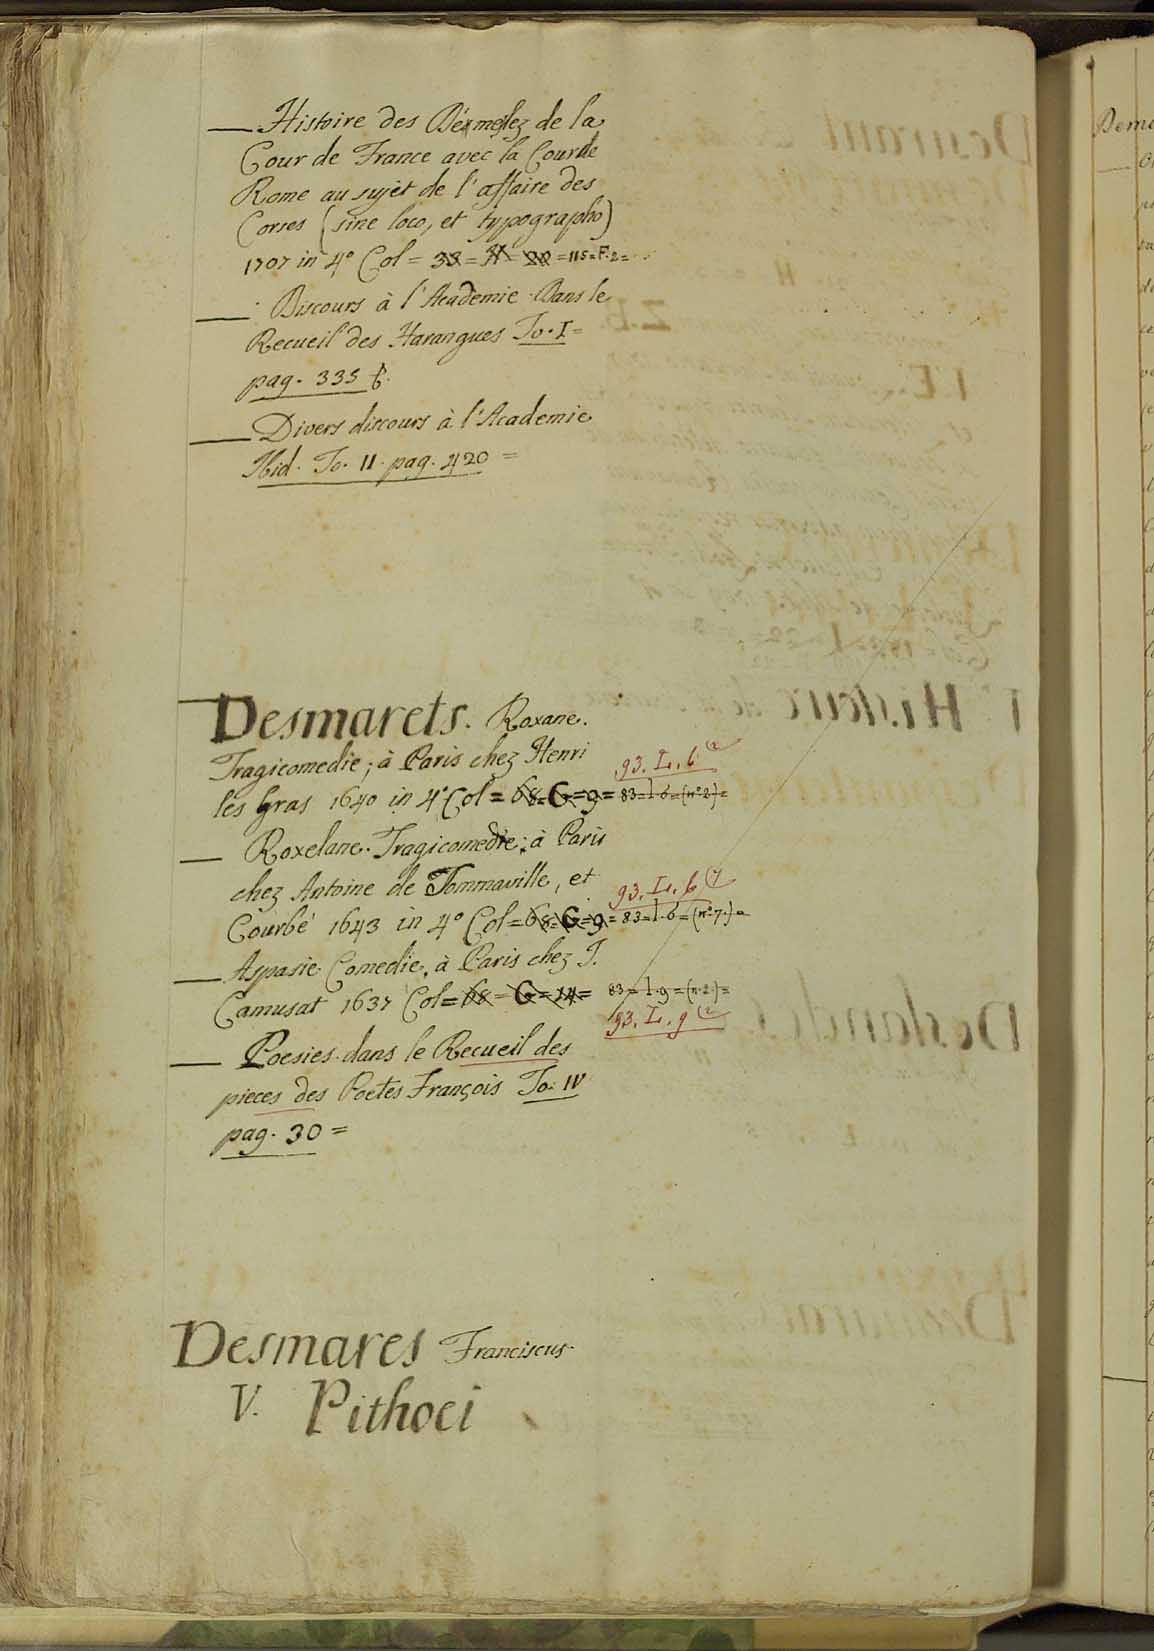 — Histoire des Démelez de la
Cour de France avec la Cour de
Rome au sujèt de l'affaire des
Corses (sine loco, et typographo)
1707 in 4° Col = 38 = = 20 = 115 = F. 2 =
— Discours à l'Academie Dans le
Recueil des Harangues To. I =
pag. 335
— Divers discours à l'Academie
Ibid. To. II. pag. 420 =
— Desmarets. Roxane.
Tragicomedie; à Paris chez Henri
93. L. 6 (2
lés Gras 1640 in 4° Col = 68 = G = 9 = 83 = l. 6 = (n° 2.) =
— Roxelane. Tragicomedie; à Paris
chez Antoine de Tommaville, et
93. L. 6 (7
Courbé 1643 in 4° Col = 68 = G = 9 = 83 = l. 6 = (n° 7.) =
— Aspasie Comedie, à Paris chez J.
Camusat 1637 Col = 68 = G = 14 = 83 = l. 9 = (n. 2.) =
93. L. 9 (2
— Poesies dans le Recueil des
pieces des Poetes François To. IV
pag. 30 =
Desmares Franciscus
V. Pithoei